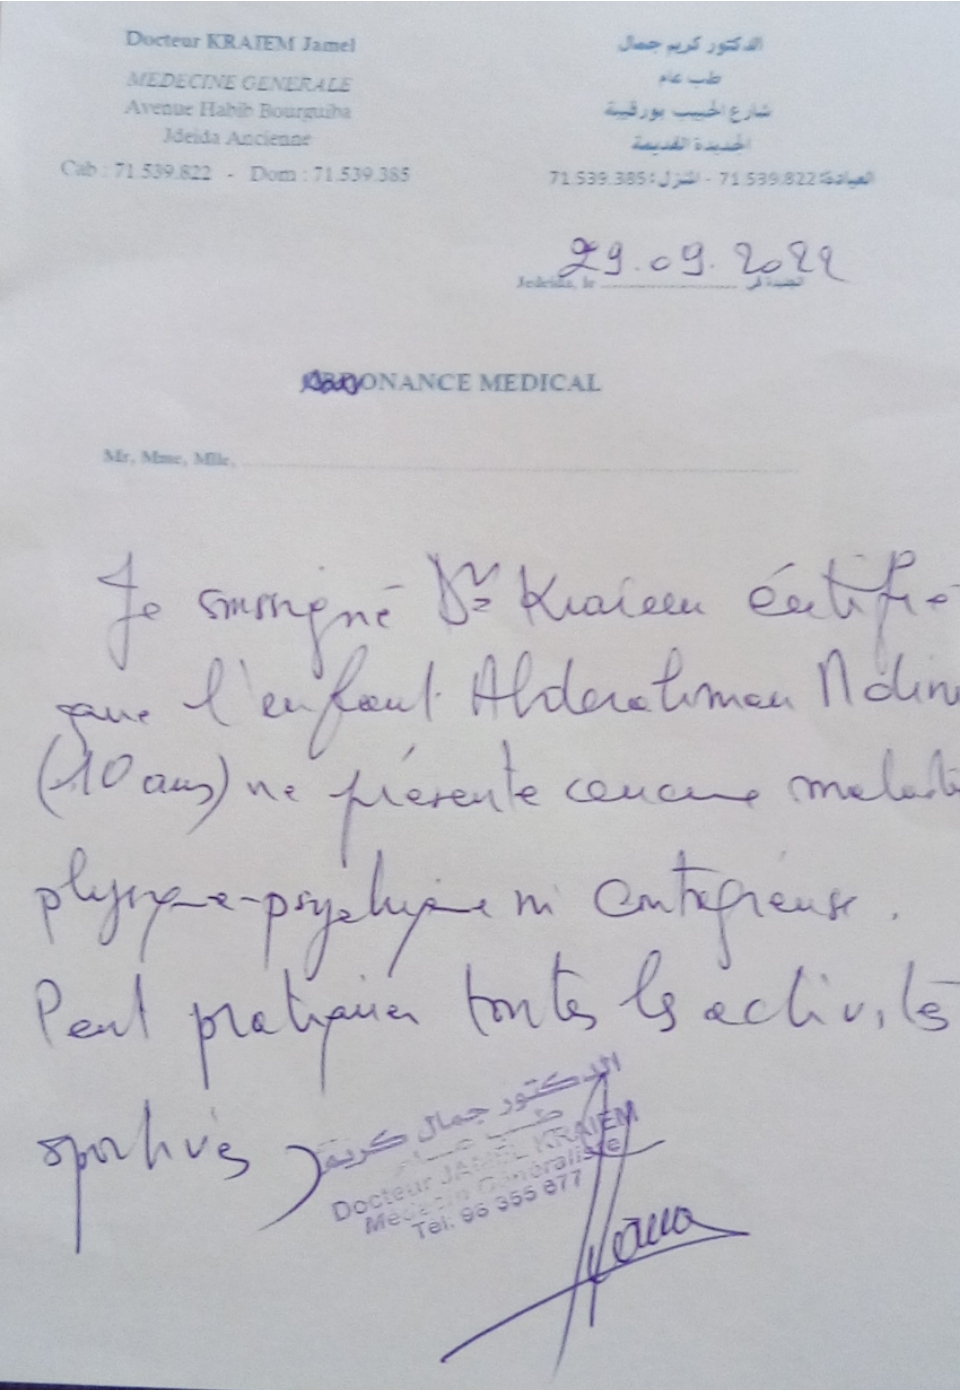 Docteur KRAIEM Jamel
MEDECINE GENERALE
Avenue Habib Bourguiba
Jdeida Ancienne
Cab : 71.539.822 - Dom : 71.539.385
الدكتور كريم جمال
طب عام
شارع الحبيب بورقيبة
الجديدة القديمة
العيادة: 71.539.822 - المنزل: 71.539.385
29.09.2022
Jedeida, le ........................ الجديدة في
ONANCE MEDICAL
Mr, Mme, Mlle, ........................
Je soussigné Dr Kraiem certifie
que l'enfant Abderahman
(10 ans) ne présente aucune maladie
physique-psychique ni contagieuse.
Peut pratiquer toutes les activités
sportives
الدكتور جمال كريم
طب عام
Docteur JAMEL KRAIEM
Médecin Généraliste
Tél: 96 355 677